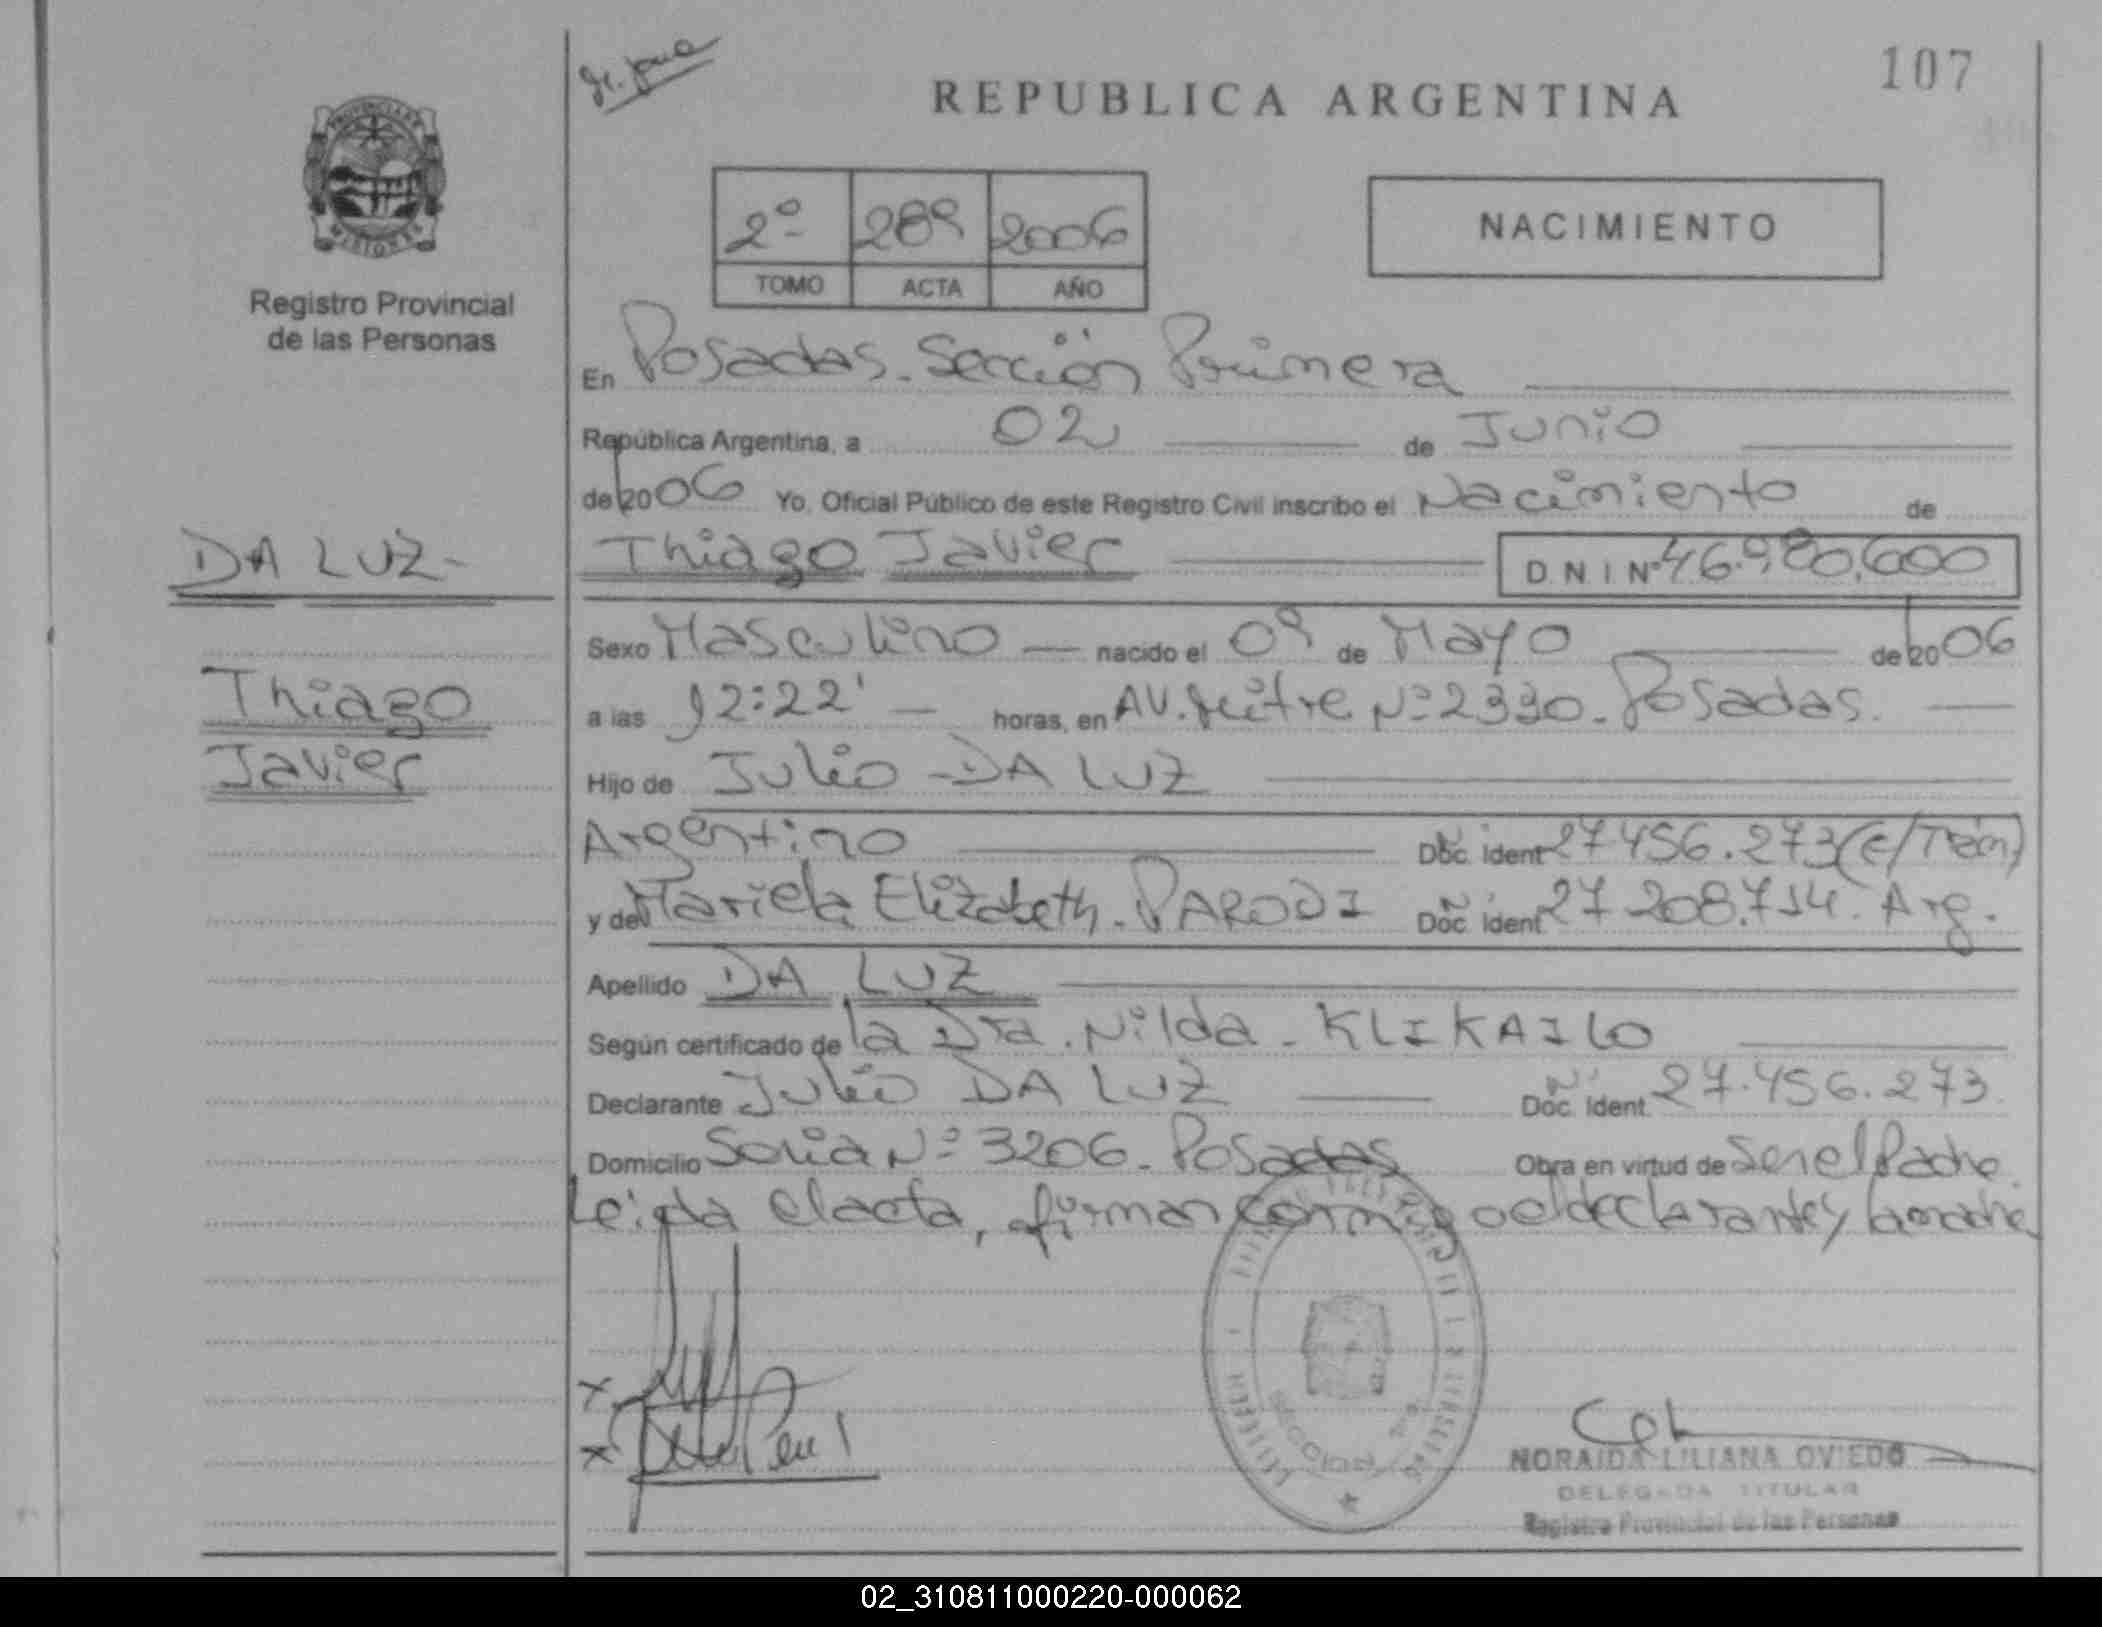 107
REPUBLICA ARGENTINA
PROVINCIA DE MISIONES
Registro Provincial
de las Personas
2º 289 2006
TOMO ACTA AÑO
NACIMIENTO
En Posadas. Sección Primera
República Argentina, a 02 de Junio
de 2006 Yo, Oficial Público de este Registro Civil inscribo el Nacimiento de
DA LUZ-
Thiago Javier DNI Nº 46.980.600
Sexo Masculino nacido el 09 de Mayo de 2006
Thiago
a las 12:22' horas, en AV. Mitre Nº 2330. Posadas.
Javier
Hijo de Julio DA LUZ
Argentino Doc. Ident 27 456.273 (E/Trám)
y de Mariela Elizabeth. PARODI Doc. Ident 27 208.714. Arg.
Apellido DA LUZ
Según certificado de la Dra. Nilda - KLIKAILO
Declarante Julio DA LUZ Doc. Ident. 27.456.273
Domicilio Soria Nº 3206. Posadas Obra en virtud de Ser el Padre.
Leida el acta, firman conmigo el declarante y la madre
NORAIDA LILIANA OVIEDO
DELEGADA TITULAR
Registro Provincial de las Personas
02_310811000220-000062